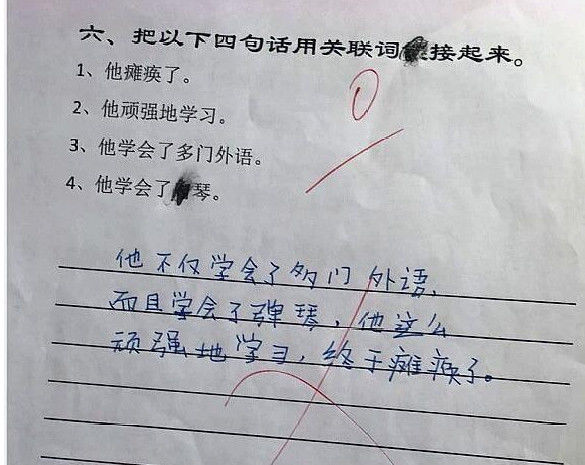 六、把以下四句话用关联词接起来。
1、他瘫痪了。
2、他顽强地学习。
3、他学会了多门外语。
4、他学会了琴。
0
他不仅学会了多门外语，
而且学会了弹琴，他这么
顽强地学习，终于瘫痪了。